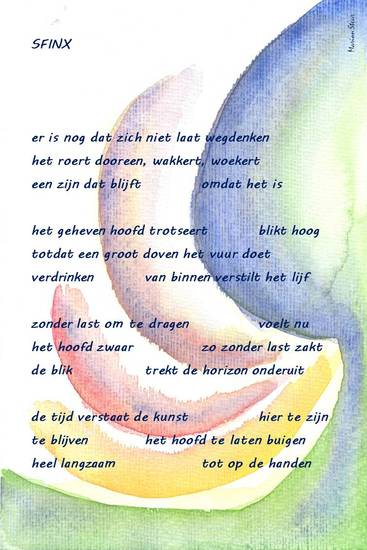 SFINX
er is nog dat zich niet laat wegdenken
het roert dooreen, wakkert, woekert
een zijn dat blijft omdat het is
het geheven hoofd trotseert blikt hoog
totdat een groot doven het vuur doet
verdrinken van binnen verstilt het lijf
zonder last om te dragen voelt nu
het hoofd zwaar zo zonder last zakt
de blik trekt de horizon onderuit
de tijd verstaat de kunst hier te zijn
te blijven het hoofd te laten buigen
heel langzaam tot op de handen